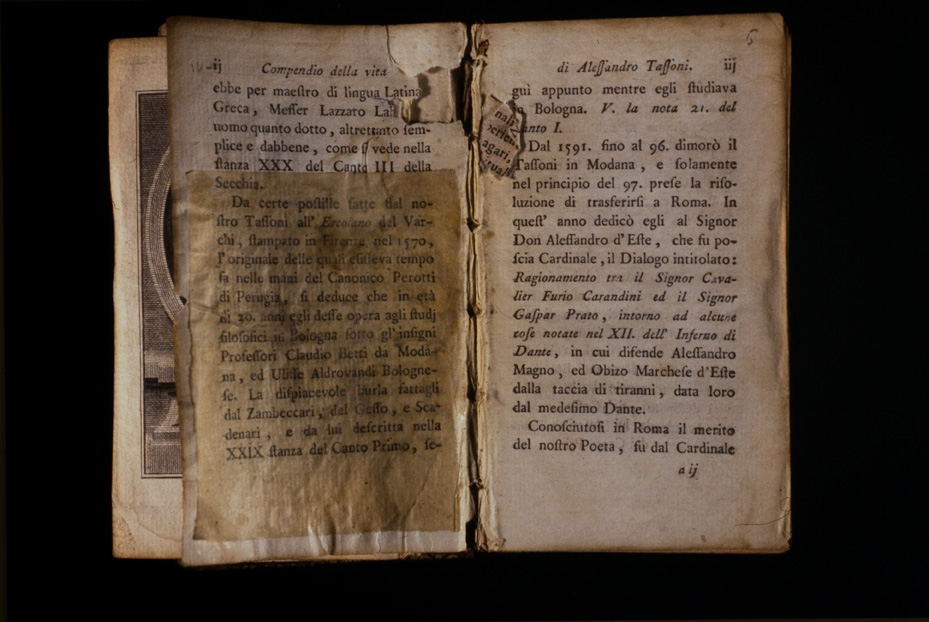 ij
Compendio della vita
ebbe per maeſtro di lingua Latina
Greca, Meſſer Lazzaro
uomo quanto dotto, altrettanto ſem-
plice e dabbene, come ſi vede nella
ſtanza XXX del Canto III della
Secchia.
Da certe poſtille fatte dal no-
ſtro Taſſoni all' Ercolano del Var-
chi, ſtampato in Firenze nel 1570,
l'originale delle quali eſiſteva tempo
fa nelle mani del Canonico Perotti
di Perugia, ſi deduce che in età
di 20. anni egli deſſe opera agli ſtudj
filoſofici in Bologna ſotto gl'inſigni
Profeſſori Claudio Betti da Moda-
na, ed Uliſſe Aldrovandi Bologne-
ſe. La diſpiacevole burla fattagli
dal Zambeccari, del Geſſo, e Sca-
denari, e da lui deſcritta nella
XXIX ſtanza del Canto Primo, ſe-
di Aleſſandro Taſſoni.
iij
6
guì appunto mentre egli ſtudiava
Bologna. V. la nota 21. del
I.
Dal 1591. fino al 96. dimorò il
Taſſoni in Modana, e ſolamente
nel principio del 97. preſe la riſo-
luzione di trasferirſi a Roma. In
queſt' anno dedicò egli al Signor
Don Aleſſandro d'Eſte, che fu po-
ſcia Cardinale, il Dialogo intitolato:
Ragionamento tra il Signor Cava-
lier Furio Carandini ed il Signor
Gaſpar Prato, intorno ad alcune
coſe notate nel XII. dell' Inferno di
Dante, in cui difende Aleſſandro
Magno, ed Obizo Marcheſe d'Eſte
dalla taccia di tiranni, data loro
dal medeſimo Dante.
Conoſciutoſi in Roma il merito
del noſtro Poeta, fu dal Cardinale
a ij
agari,